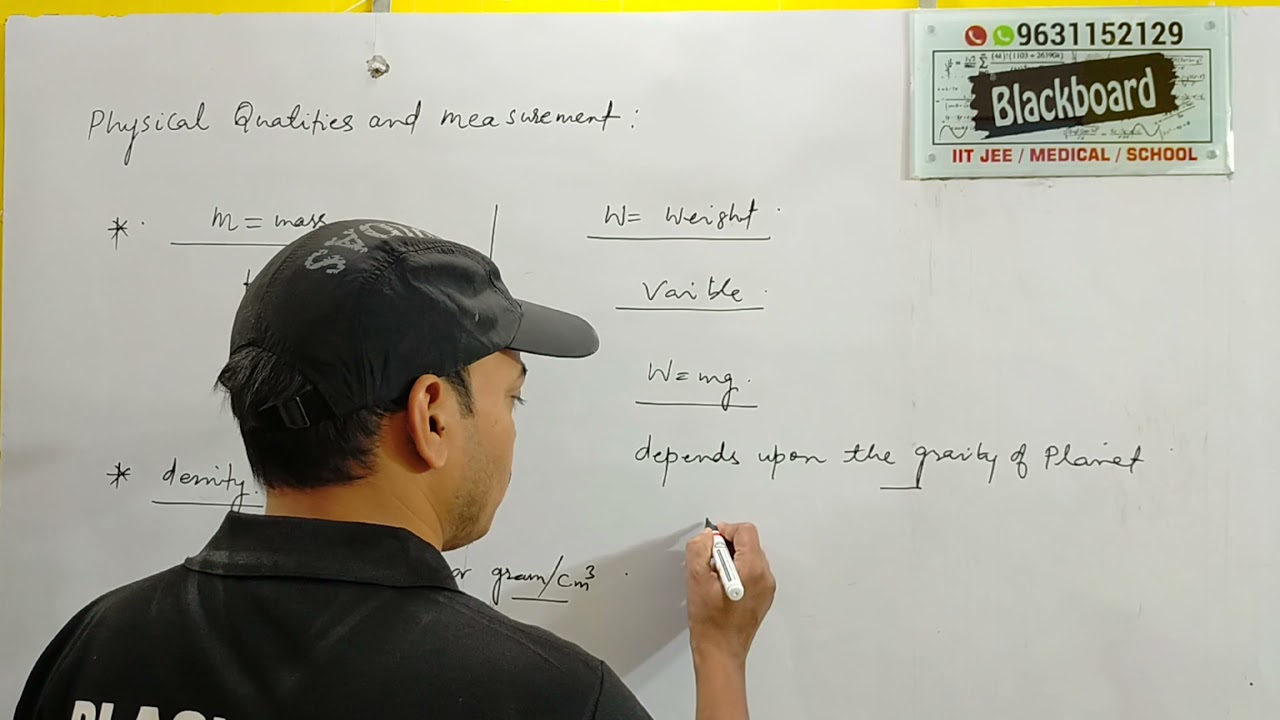 9631152129
Blackboard
IIT JEE / MEDICAL / SCHOOL
Physical Qualities and measurement:
* m = mass
W = Weight
Vaible
W = mg.
depends upon the gravity of Planet
* density.
or gram/cm³